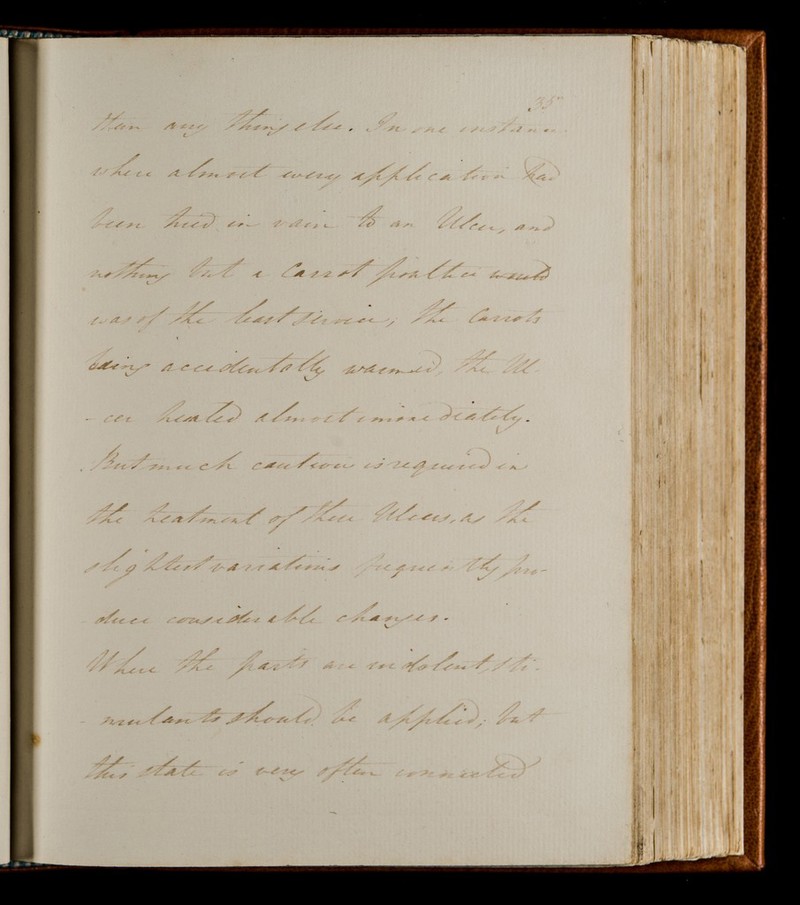 35
than any thing else. In one instance
where almost every application had
been tried in vain to an Ulcer, and
nothing but a Carrot poultice would
was of the least service, the Carrots
being accidentally warmed, the Ul
- cer healed almost immediately.
But much caution is required in
the treatment of these Ulcers, as the
slightest variations frequently pro-
- duce considerable changes.
Where the parts are indolent, sti-
- mulants should be applied; but
this state is very often connected